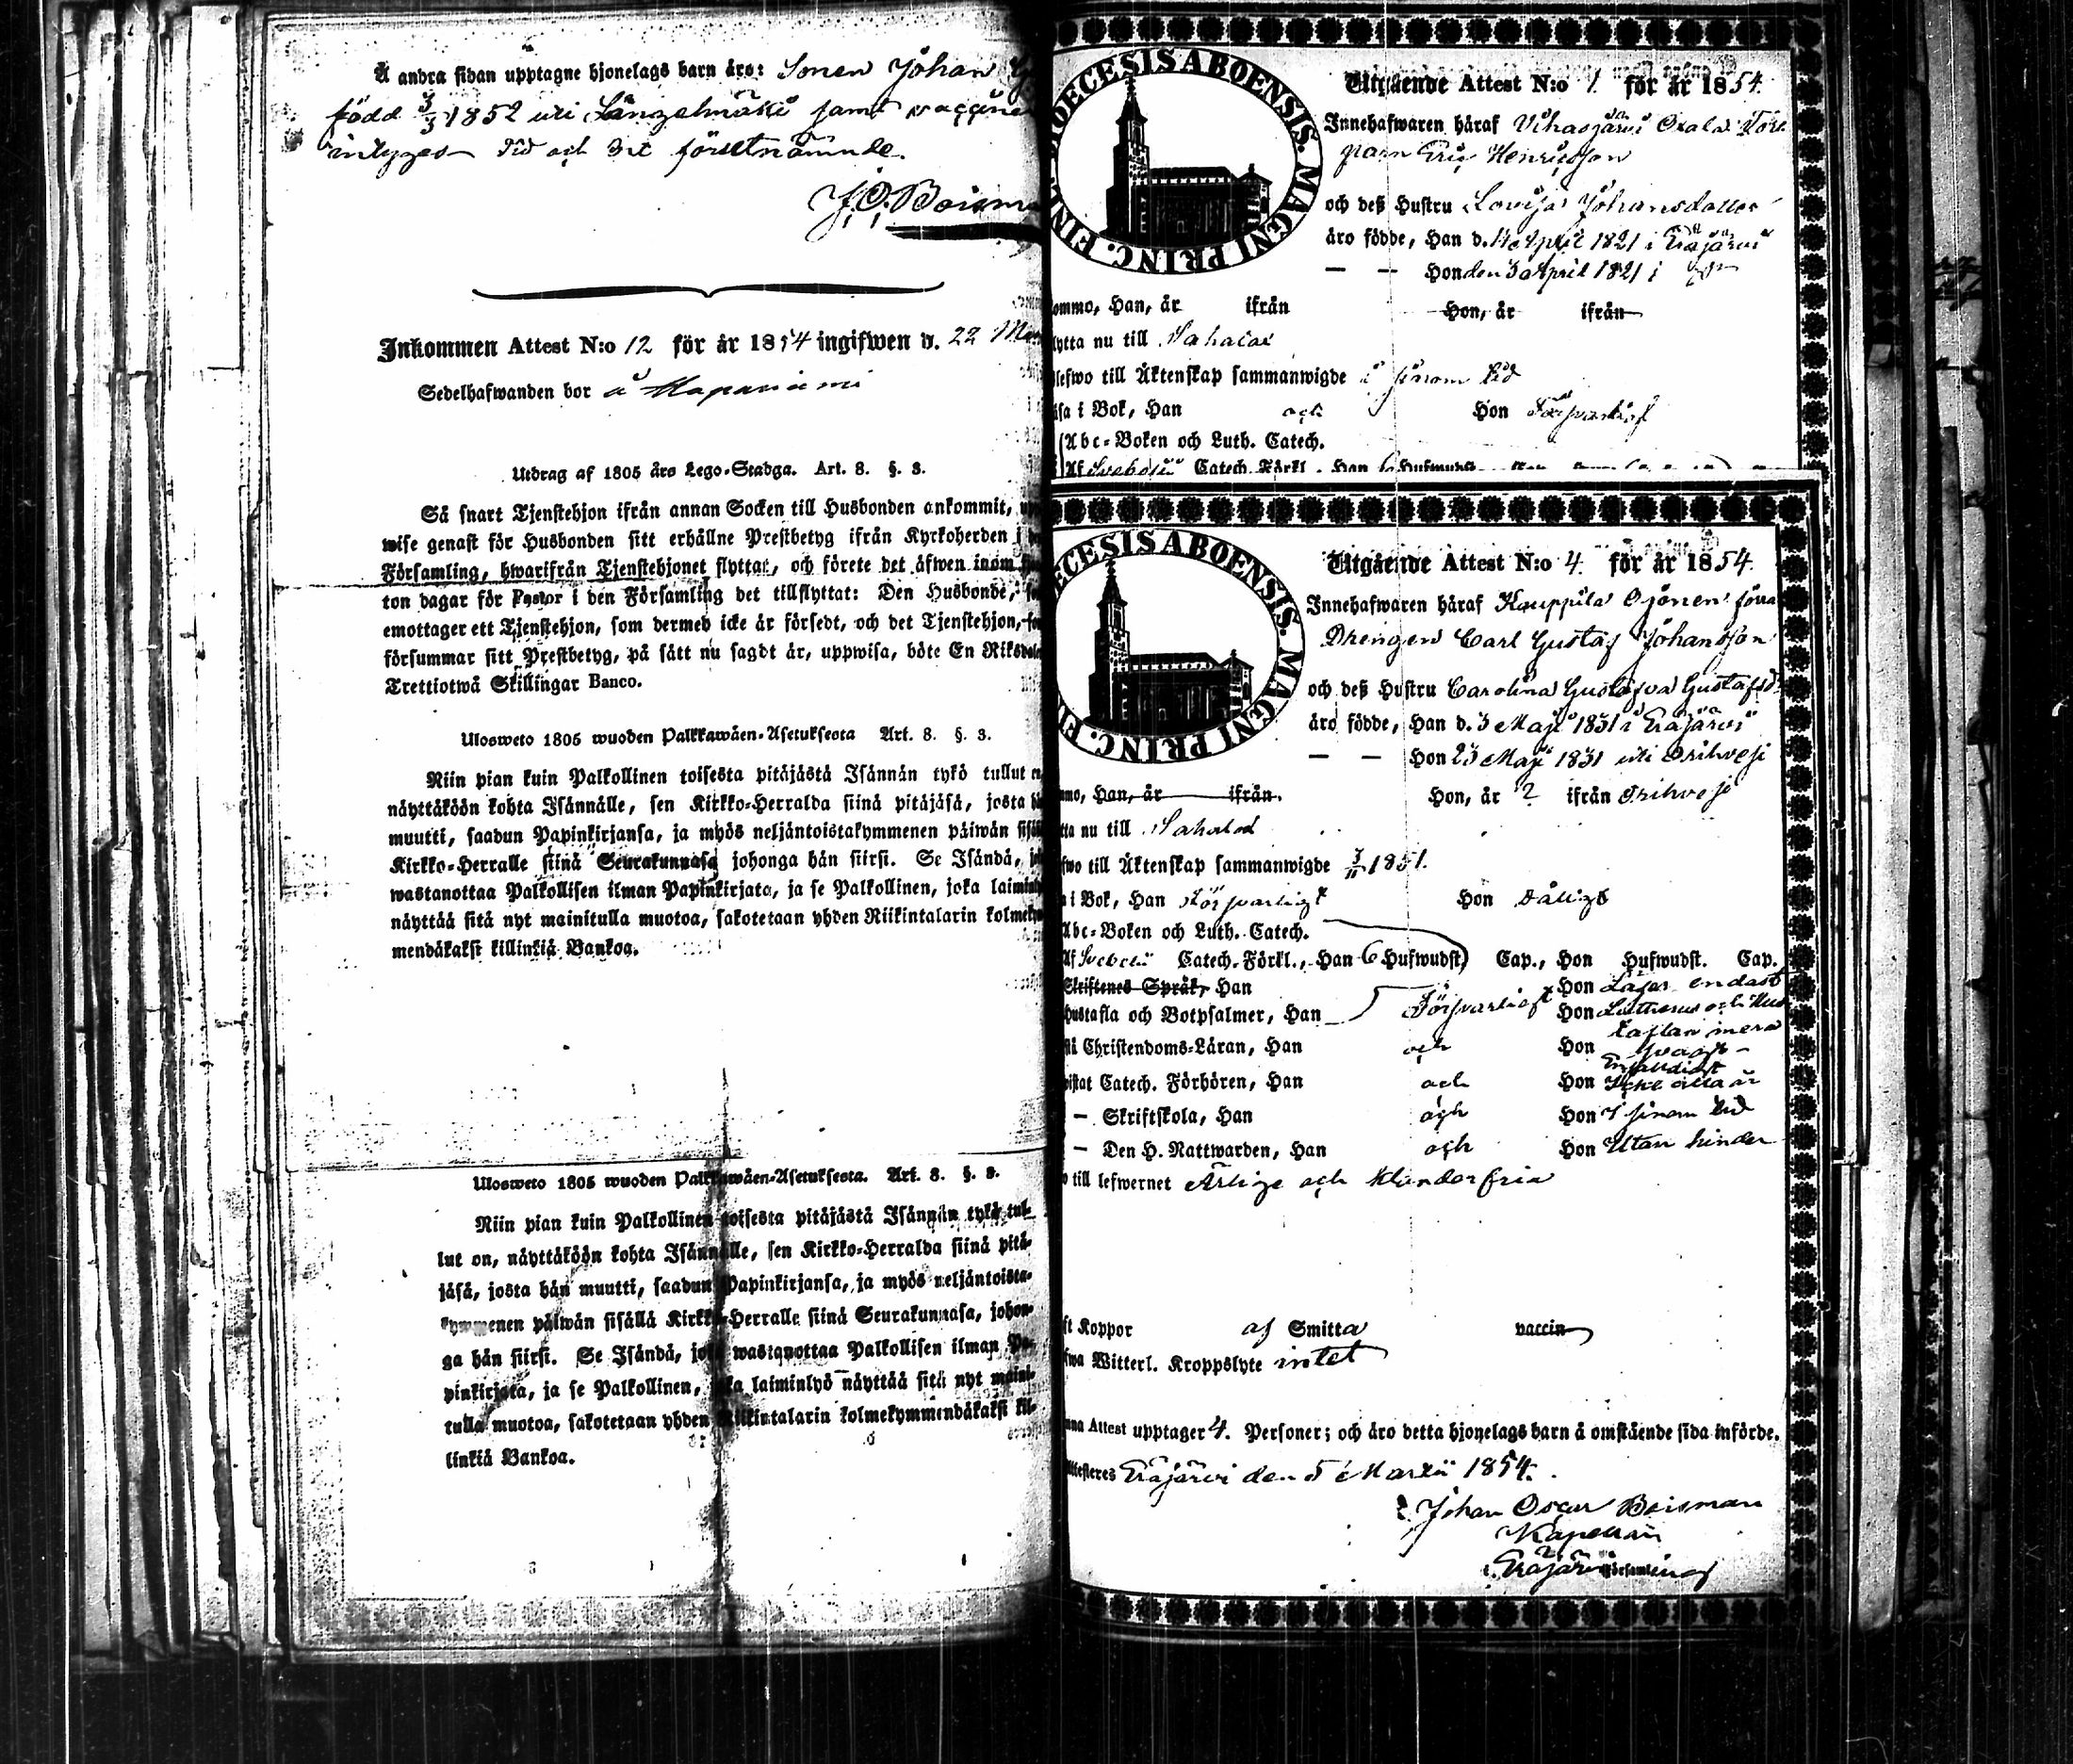 Å andra sidan upptagne hjonelags barn äro: Sonen Johan
född 3/3 1852 uti Längelmäki samt
intygas did och det förstnämnde.
J. O. Boisma
Inkommen Attest N:o 12 för år 1854 ingifwen d. 22
Sedelhafwanden bor å
Utdrag af 1805 års Lego-Stadga. Art. 8. §. 3.
Så snart Tjenstehjon ifrån annan Socken till Husbonden ankommit,
wise genast för Husbonden sitt erhållne Prestbetyg ifrån Kyrkoherden i
Församling, hwarifrån Tjenstehjonet flyttat, och förete det äfwen inom
ton dagar för Pastor i den Församling det tillflyttat: Den Husbonde,
emottager ett Tjenstehjon, som dermed icke är försedt, och det Tjenstehjon,
försummar sitt Prestbetyg, på sätt nu sagdt är, uppwisa, böte En Riksdaler
Trettiotwå Skillingar Banco.
Ulosweto 1805 wuoden Palkkawäen-Asetuksesta Art. 8. §. 3.
Niin pian kuin Palkollinen toisesta pitäjästä Isännän tykö tullut
näyttäköön kohta Isännälle, sen Kirkko-Herralda siinä pitäjäsä, josta
muutti, saadun Papinkirjansa, ja myös neljäntoistakymmenen päiwän sisäl
Kirkko-Herralle siinä Seurakunnasa johonga hän siirsi. Se Isändä,
wastanottaa Palkollisen ilman Papinkirjata, ja se Palkollinen, joka laiminly
näyttää sitä nyt mainitulla muotoa, sakotetaan yhden Riikintalarin kolmeky
mendäkaksi killinkiä Bankoa.
Ulosweto 1805 wuoden Palkkawäen-Asetuksesta. Art. 8. §. 3.
Niin pian kuin Palkollinen toisesta pitäjästä Isännän tykö tul-
lut on, näyttäköön kohta Isännälle, sen Kirkko-Herralda siinä pitä-
jäsä, josta hän muutti, saadun Papinkirjansa, ja myös neljäntoista-
kymmenen päiwän sisällä Kirkko-Herralle siinä Seurakunnasa, johon-
ga hän siirsi. Se Isändä, joka wastanottaa Palkollisen ilman Pa-
pinkirjata, ja se Palkollinen, joka laiminlyö näyttää sitä nyt maini-
tulla muotoa, sakotetaan yhden Riikintalarin kolmekymmendäkaksi kil-
linkiä Bankoa.
DIOECESIS ABOENSIS. MAGNI PRINC. FINL.
Utgående Attest N:o 1 för år 1854.
Innehafwaren häraf Vihasjärvi
Eric Henricsson
och deß Hustru Lovisa Johansdotter
äro födde, Han d. April 1821 i Eräjärvi
— — Hon den 3 April 1821 i
ommo, Han, år ifrån Hon, år ifrån
lytta nu till Sahalax
lefwo till Äktenskap sammanwigde i sinom tid
äsa i Bok, Han och Hon Försvarligt
Abc-Boken och Luth. Catech.
Af Svebelii Catech. Förkl., Han 6 Hufwudst.
ECESIS ABOENSIS. MAGNI PRINC. FINL
Utgående Attest N:o 4. för år 1854.
Innehafwaren häraf Kauppila Ojonen förra
Drengen Carl Gustaf Johansson
och deß Hustru Carolina Gustafva Gustafsd:
äro födde, Han d. 3 Maji 1831 i Eräjärvi
— — Hon 23 Maji 1831 uti Orihvesi
mo, Han, år ifrån. Hon, år ? ifrån Orihvesi
tta nu till Sahalax
fwo till Äktenskap sammanwigde 3/11 1851.
a i Bok, Han Försvarligt Hon Dåligt
Abc-Boken och Luth. Catech.
Af Svebelii Catech. Förkl., Han 6 Hufwudst. Cap., Hon Hufwudst. Cap.
Skriftenes Språk, Han Hon Läser endast
Hustafla och Botpsalmer, Han Försvarligt Hon Lutherus och Hus
taflan mera
stå Christendoms-Läran, Han och Hon svagt
Enfaldigt
istat Catech. Förhören, Han och Hon Icke alla år
— Skriftskola, Han och Hon I sinom tid
— Den H. Nattwarden, Han och Hon Utan hinder
o till lefwernet Ärlige och Klanderfria
ft Koppor af Smitta vaccin
fwa Witterl. Kroppslyte intet
nna Attest upptager 4. Personer; och äro detta hjonelags barn å omstående sida införde.
Attesteres Eräjärvi den 5 Martii 1854.
Johan Oscar Boisman
Kapellan
i. Eräjärvi Församling